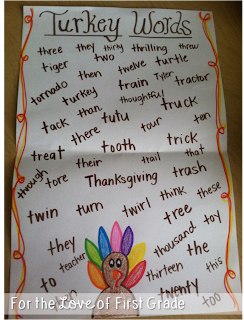 Turkey Words
three they thirty thrilling threw
tiger two twelve turtle
tornado then train Tyler tractor
turkey thoughtful
tack than truck
tutu
there tour ten
treat tooth trick
through their trail that
tore Thanksgiving trash
twin turn twirl think these
tree toy
they thousand the
to teacher thirteen this
twenty too
For the Love of First Grade